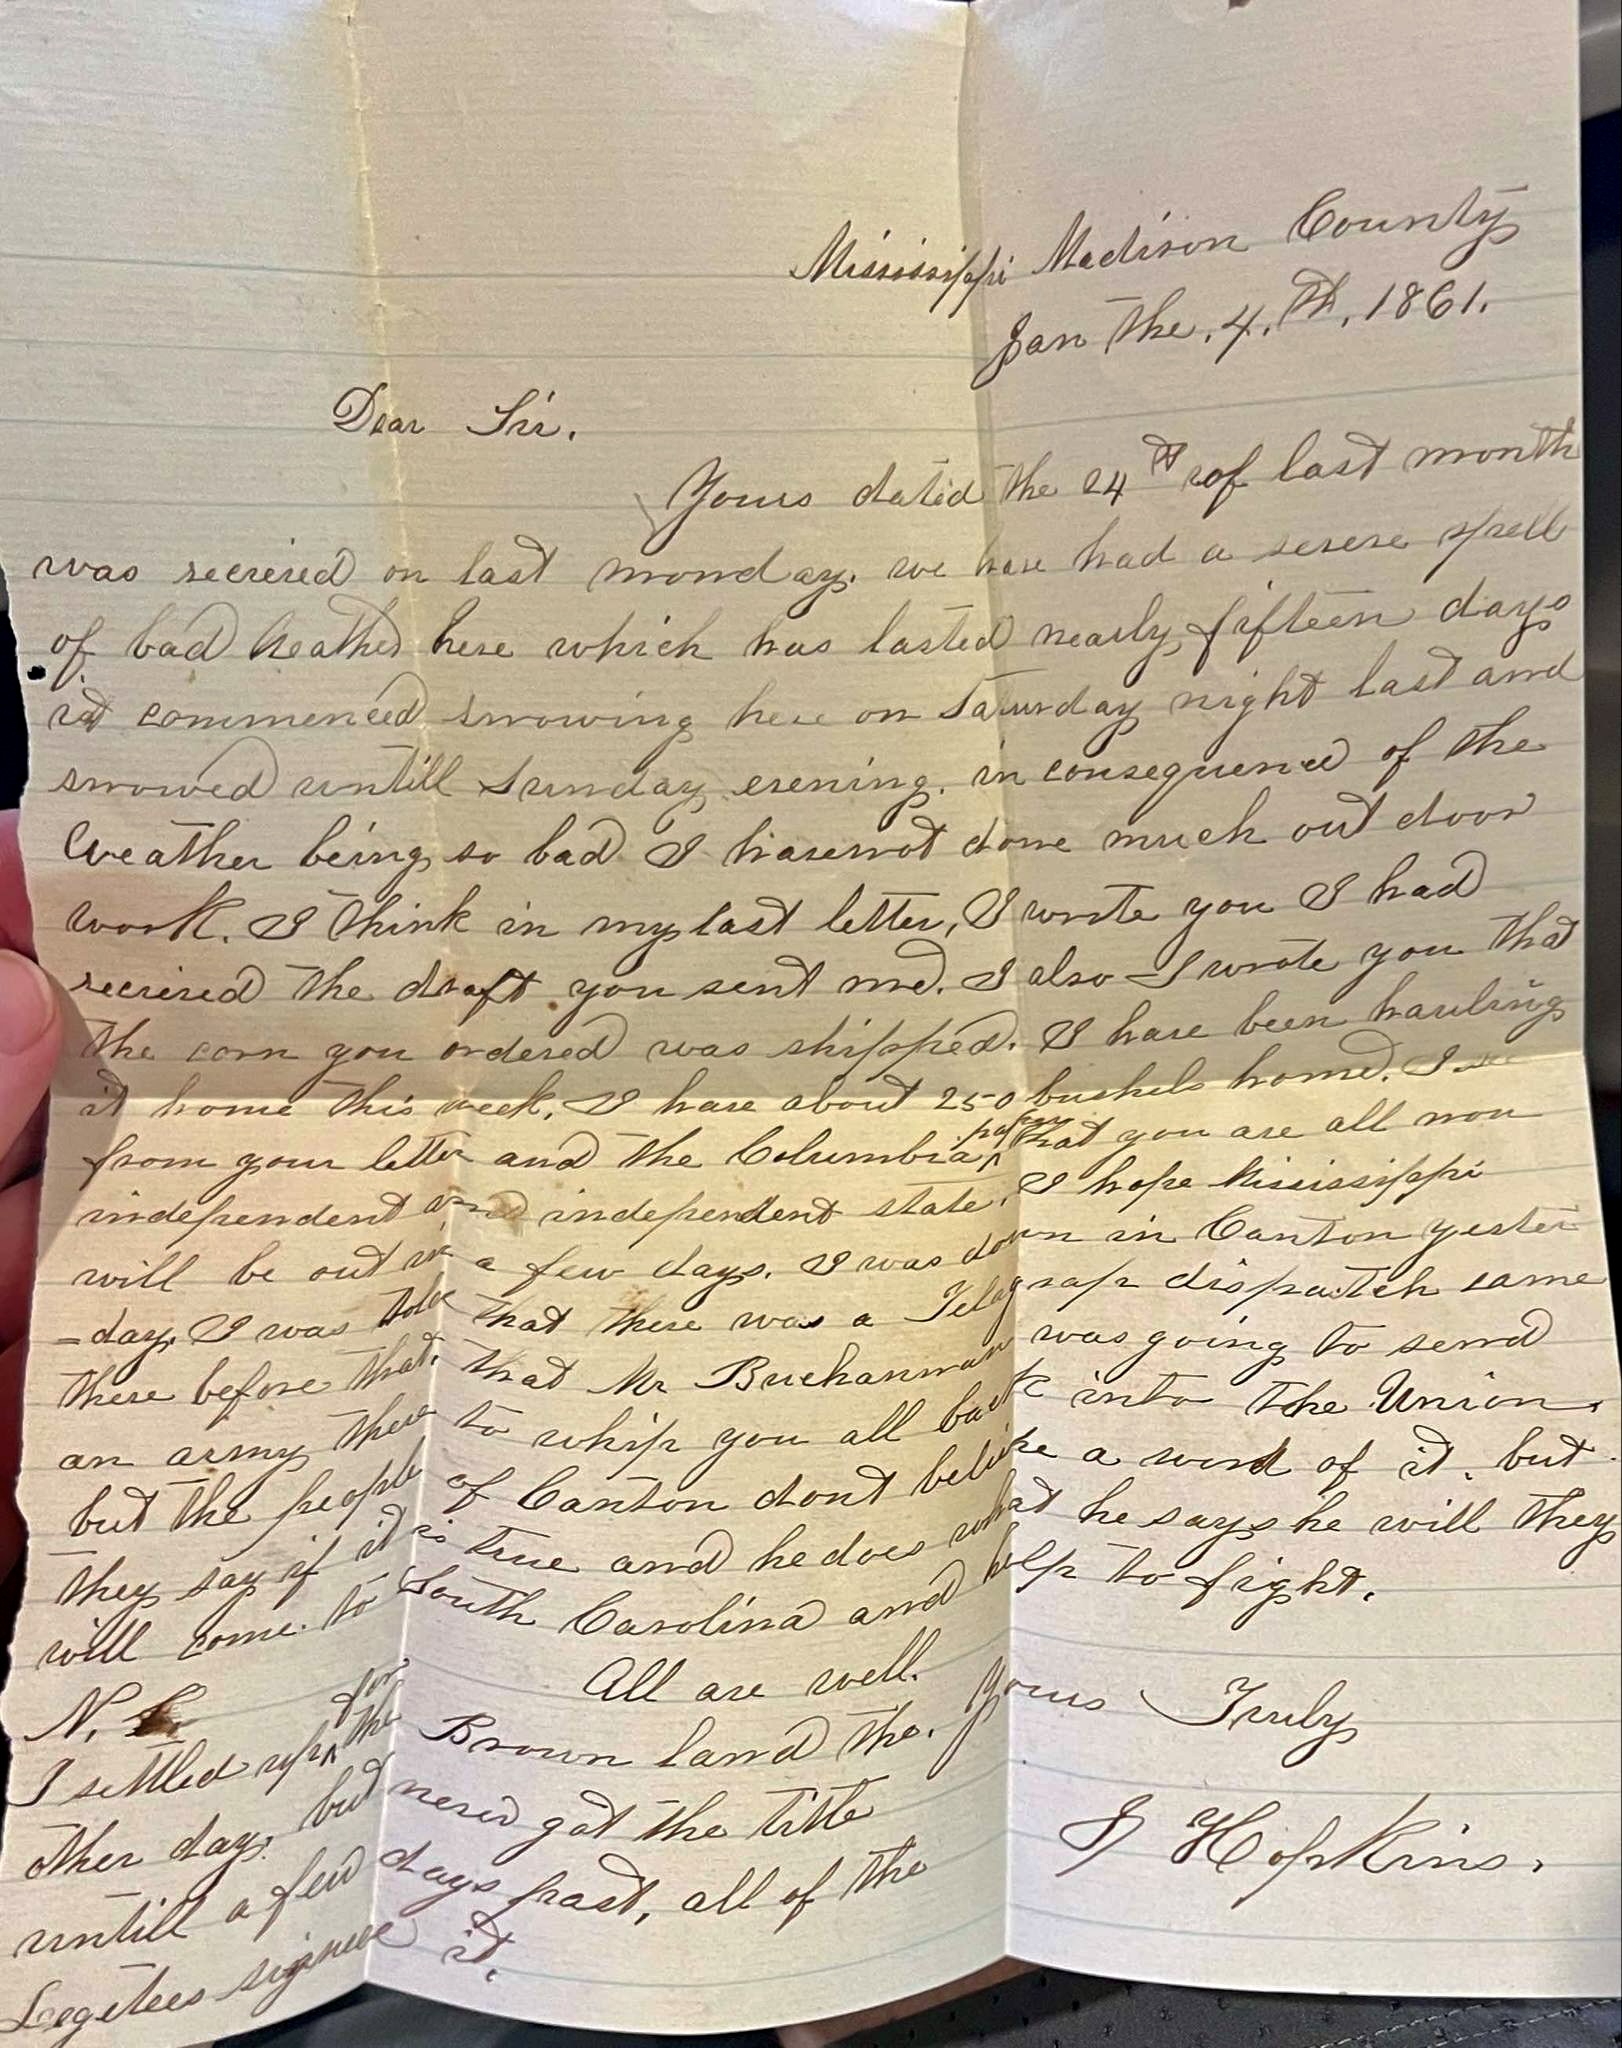 Mississippi Madison County
Jan the. 4. th. 1861.
Dear Sir.
Yours dated the 24th of last month
was recieved on last monday. we have had a severe spell
of bad heather here which has lasted nearly fifteen days
it commenced snowing here on Saturday night last and
snowed untill Sunday evening. in consequence of the
Weather being so bad I havenot done much out door
work. I think in my last letter, I wrote you I had
recieved the draft you sent me. I also I wrote you that
the corn you ordered was shipped. I have been hauling
it home this week. I have about 250 bushels home. I see
from your letter and the Columbia paper that you are all now
independent and independent state. I hope Mississippi
will be out in a few days. I was down in Canton yester
-day. I was told that there was a Telagrap dispatch came
there before that. that Mr Buchannan was going to send
an army there to whip you all back into the Union.
but the people of Canton dont believe a word of it. but
they say if it is true and he does what he says he will they
will come to South Carolina and help to fight.
All are well. Yours Truly
J Hopkins.
N.
I settled up for the Brown land the.
other day. but never got the title
untill a few days past, all of the
Legetees signed it.